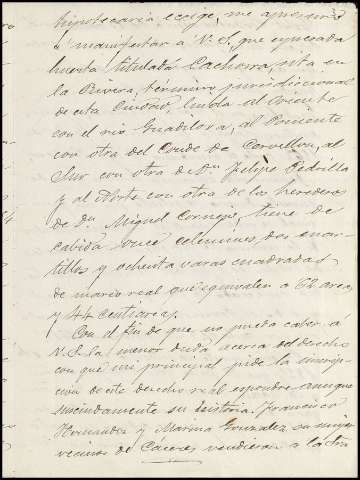 hipotecaria exige, me apresuro
á manifestar a V. S., que expresada
huerta titulada Cachorra, sita en
la Rivera, término jurisdiccional
de esta Ciudad, linda al Oriente
con el rio Guadiloca, al Poniente
con otra del Conde de Corvellon, al
Sur con otra de Dn. Felipe Pedrilla
y al Norte con otra de los herederos
de Dn. Miguel Cornejo, tiene de
cabida once celemines, dos cuar-
tillos y ochenta varas cuadradas
de marco real que equivalen a 62 areas
y 44 centiareas.
Con el fin de que no pueda caber á
V. S. la menor duda acerca del derecho
con que mi principal pide la inscrip-
cion de este derecho real espondré aunque
sucindamente su historia. Francisco
Hernandez y Marina Gonzalez su mujer
vecinos de Cáceres vendieron a